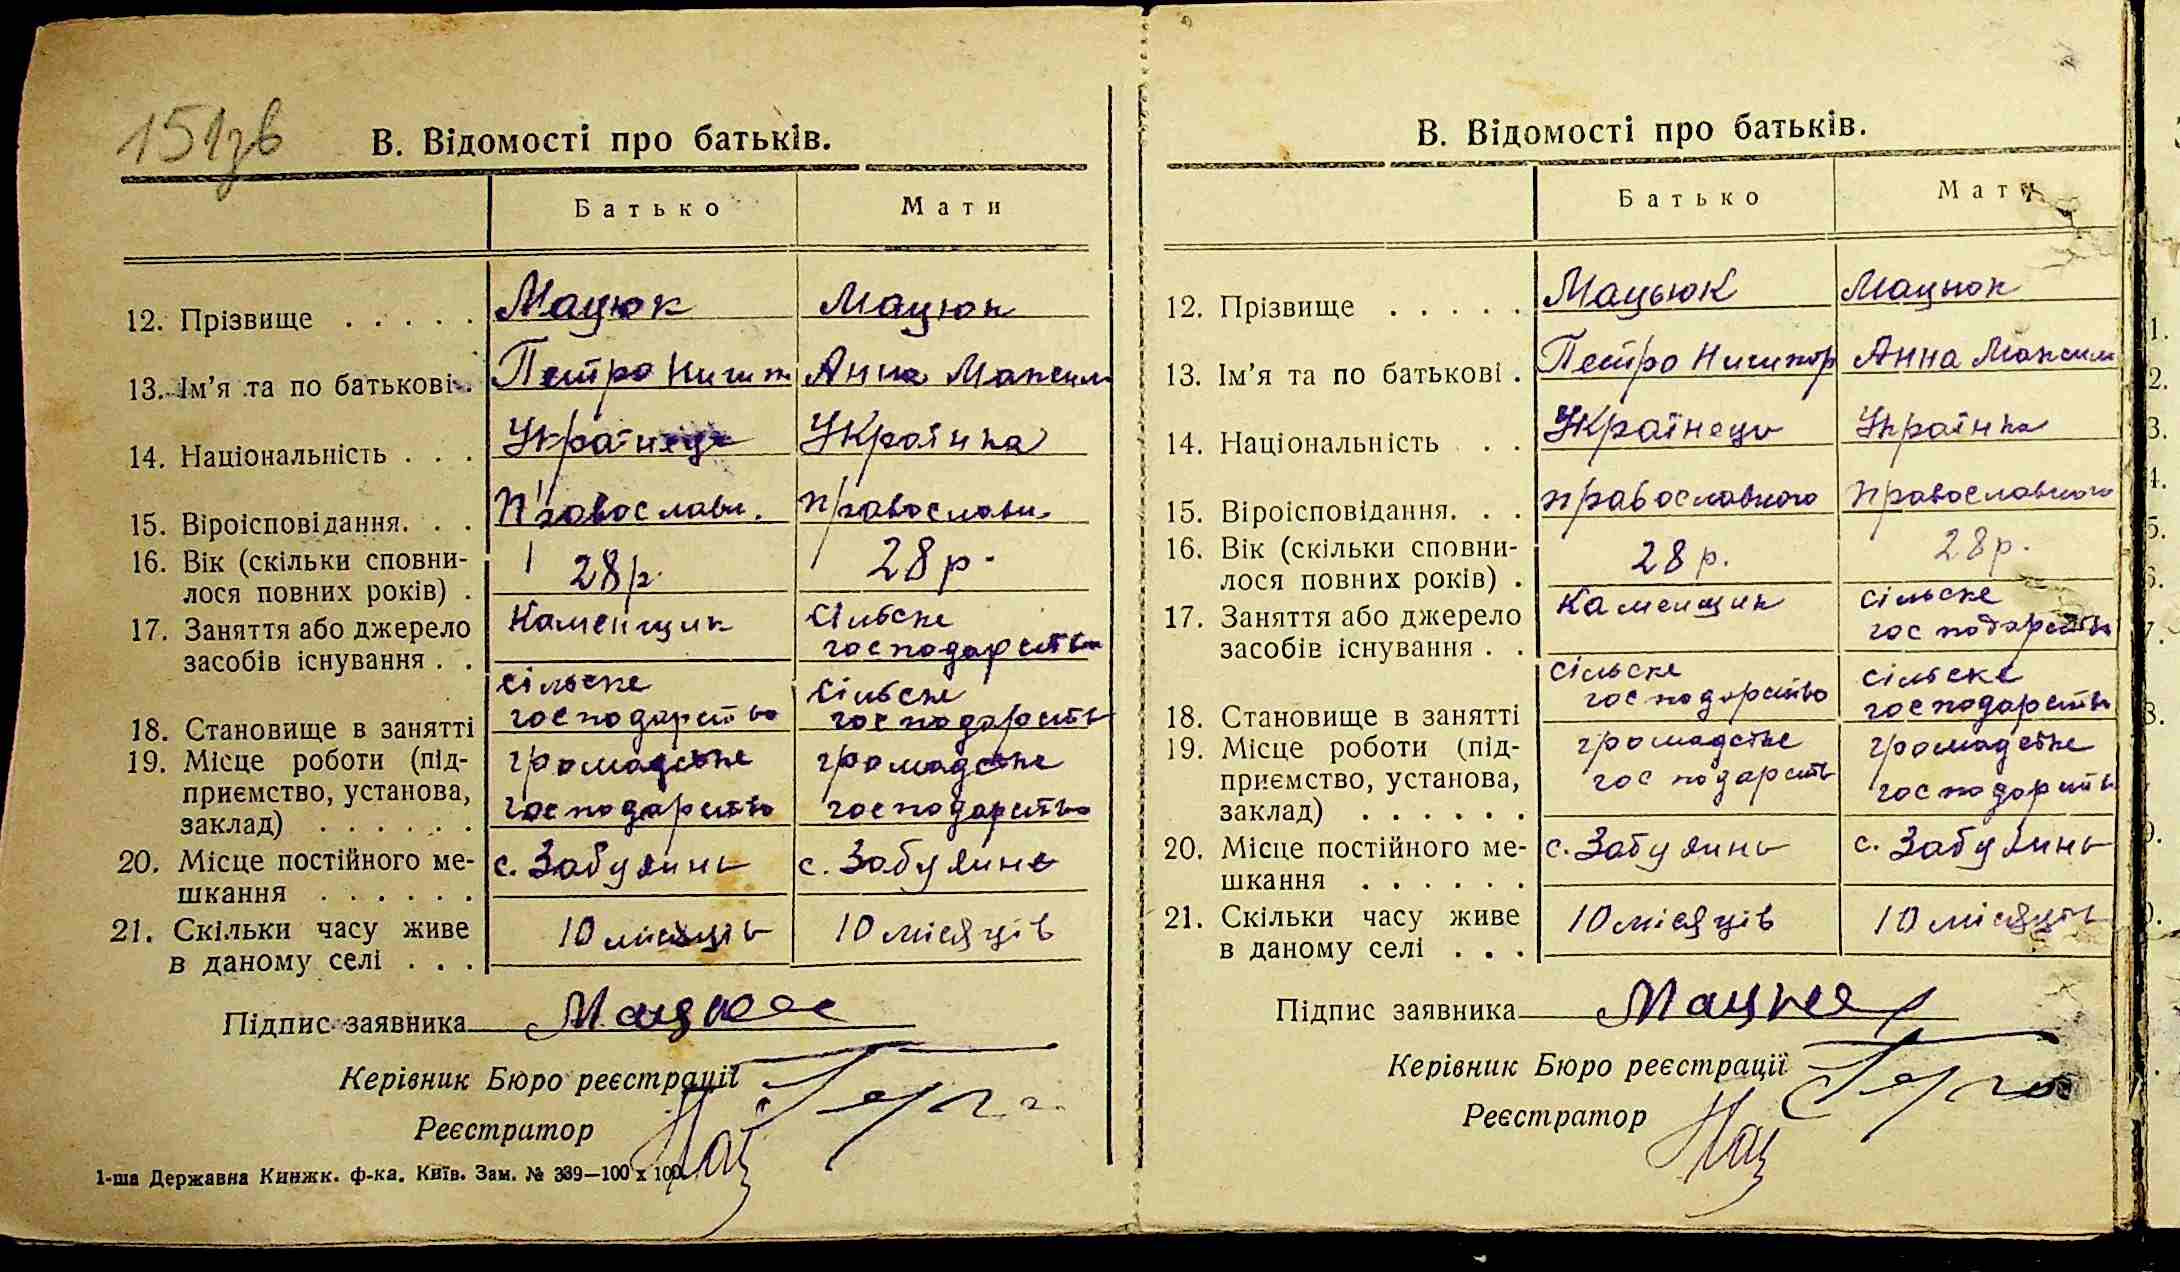 151зв
В. Відомості про батьків.
Батько Мати
12. Прізвище . . . . . Мацюк Мацюк
13. Ім'я та по батькові . Петро Ничип Анна Максим
14. Національність . . . Українець Українка
15. Віроісповідання. . . Православн. православн.
16. Вік (скільки сповни-
лося повних років) . 28 р. 28 р.
17. Заняття або джерело Каменщик сільске
засобів існування . . господарство
сільске сільске
18. Становище в занятті господарство господарств
19. Місце роботи (під- громадське громадске
приємство, установа,
заклад) . . . . . . господарство господарство
20. Місце постійного ме- с. Забуяння с. Забуяння
шкання . . . . . .
21. Скільки часу живе 10 місяців 10 місяців
в даному селі . . .
Підпис заявника Мацюк
Керівник Бюро реєстрації
Реєстратор
1-ша Державна Книжк. ф-ка. Київ. Зам. № 339—100 x 100.
В. Відомості про батьків.
Батько Мати
12. Прізвище . . . . . Мацьюк Мацьюк
13. Ім'я та по батькові . Петро Ничипор Анна Максим
14. Національність . . Українець Українка
15. Віроісповідання. . . православного православного
16. Вік (скільки сповни-
лося повних років) . 28 р. 28 р.
17. Заняття або джерело Каменщик сільске
засобів існування . . господарств
сільске сільске
18. Становище в занятті господарство господарств
19. Місце роботи (під- громадске громадске
приємство, установа, господарств господарств
заклад) . . . . . .
20. Місце постійного ме- с. Забуяння с. Забуяння
шкання . . . . . .
21. Скільки часу живе 10 місяців 10 місяців
в даному селі . . .
Підпис заявника Мацюк
Керівник Бюро реєстрації
Реєстратор